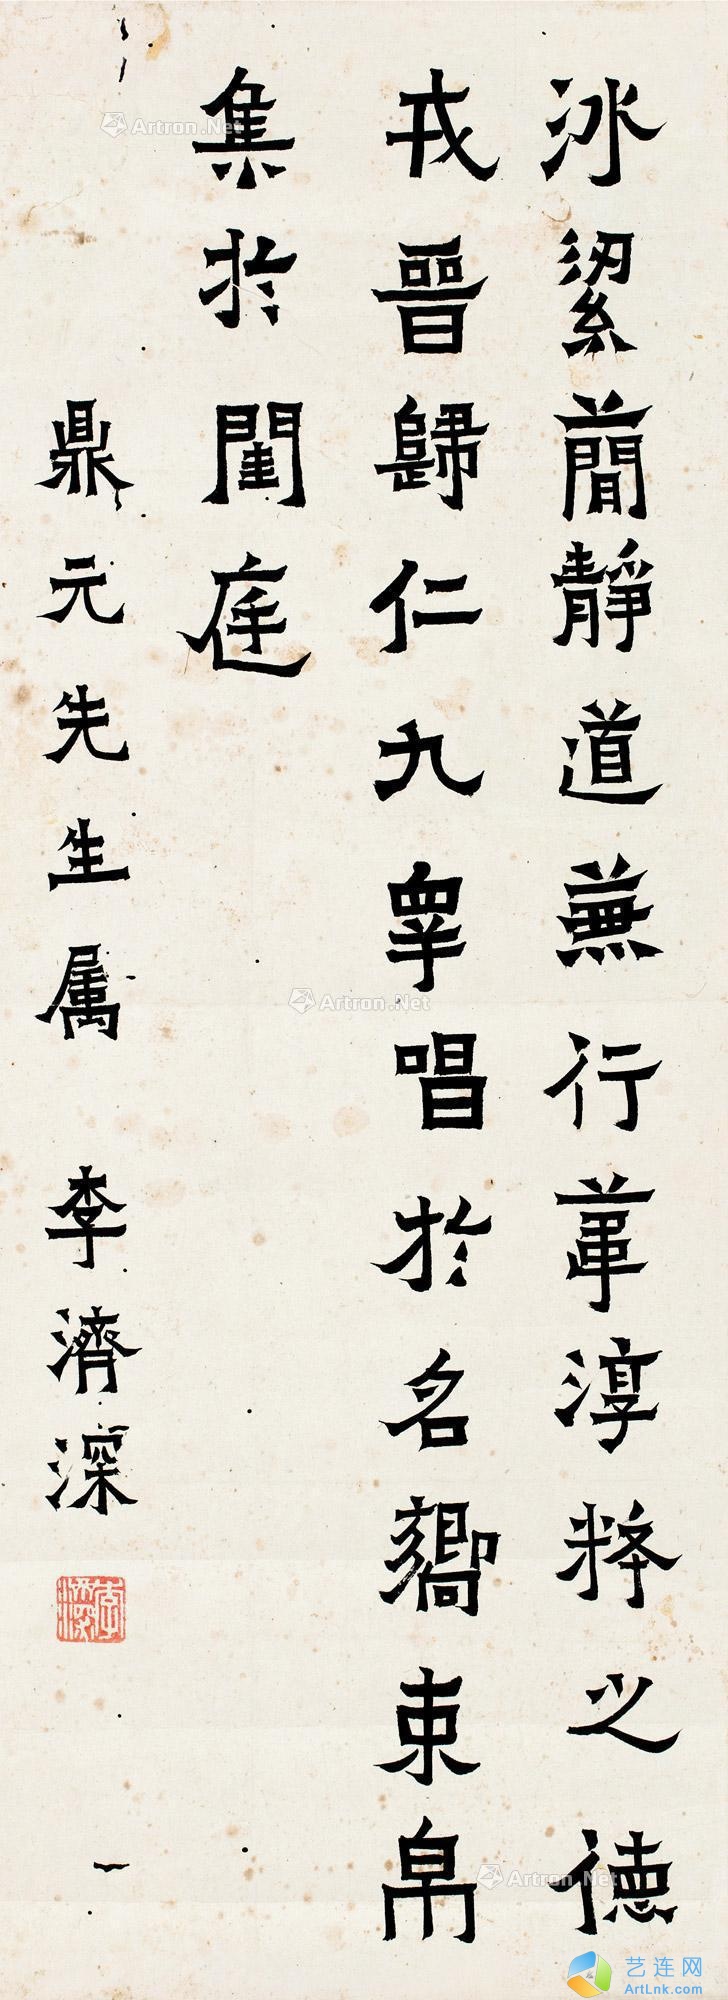 冰絜簡靜道兼行葦淳粹之德
戎晉歸仁九皋唱於名嚮束帛
集於閨庭
鼎元先生属 李濟深
李濟深
Artron.Net
Artron.Net
Artron.Net
Artron.Net
艺连网
ArtLink.com